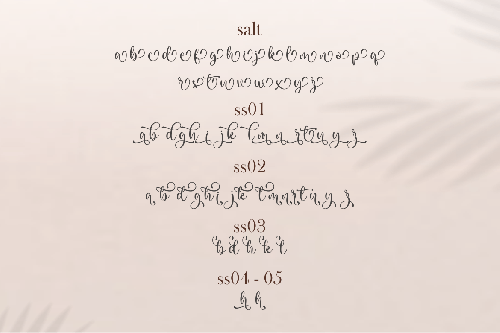 salt
a b c d e f g h i j k l m n o p q
r s t u v w x y z
ss01
a b d g h i j k l m n r t u y z
ss02
a b d g h i j k l m n r t u y z
ss03
b d h k l
ss04 - 05
h h